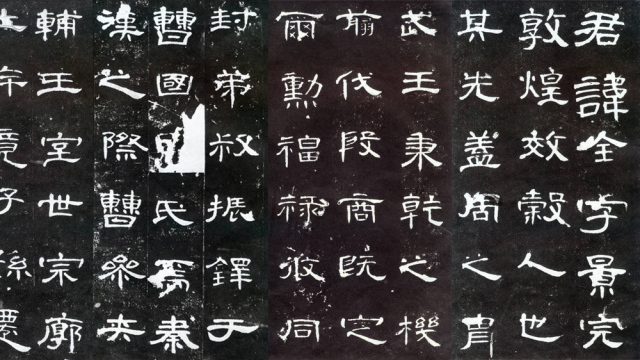 君諱全字景完
敦煌效穀人也
其先蓋周之胄
武王秉乾之機
翦伐殷商既定
爾勳福祿攸同
封弟叔振鐸于
曹國氏焉秦
漢之際曹參夾
輔王室世宗廓
土斥竟子孫遷